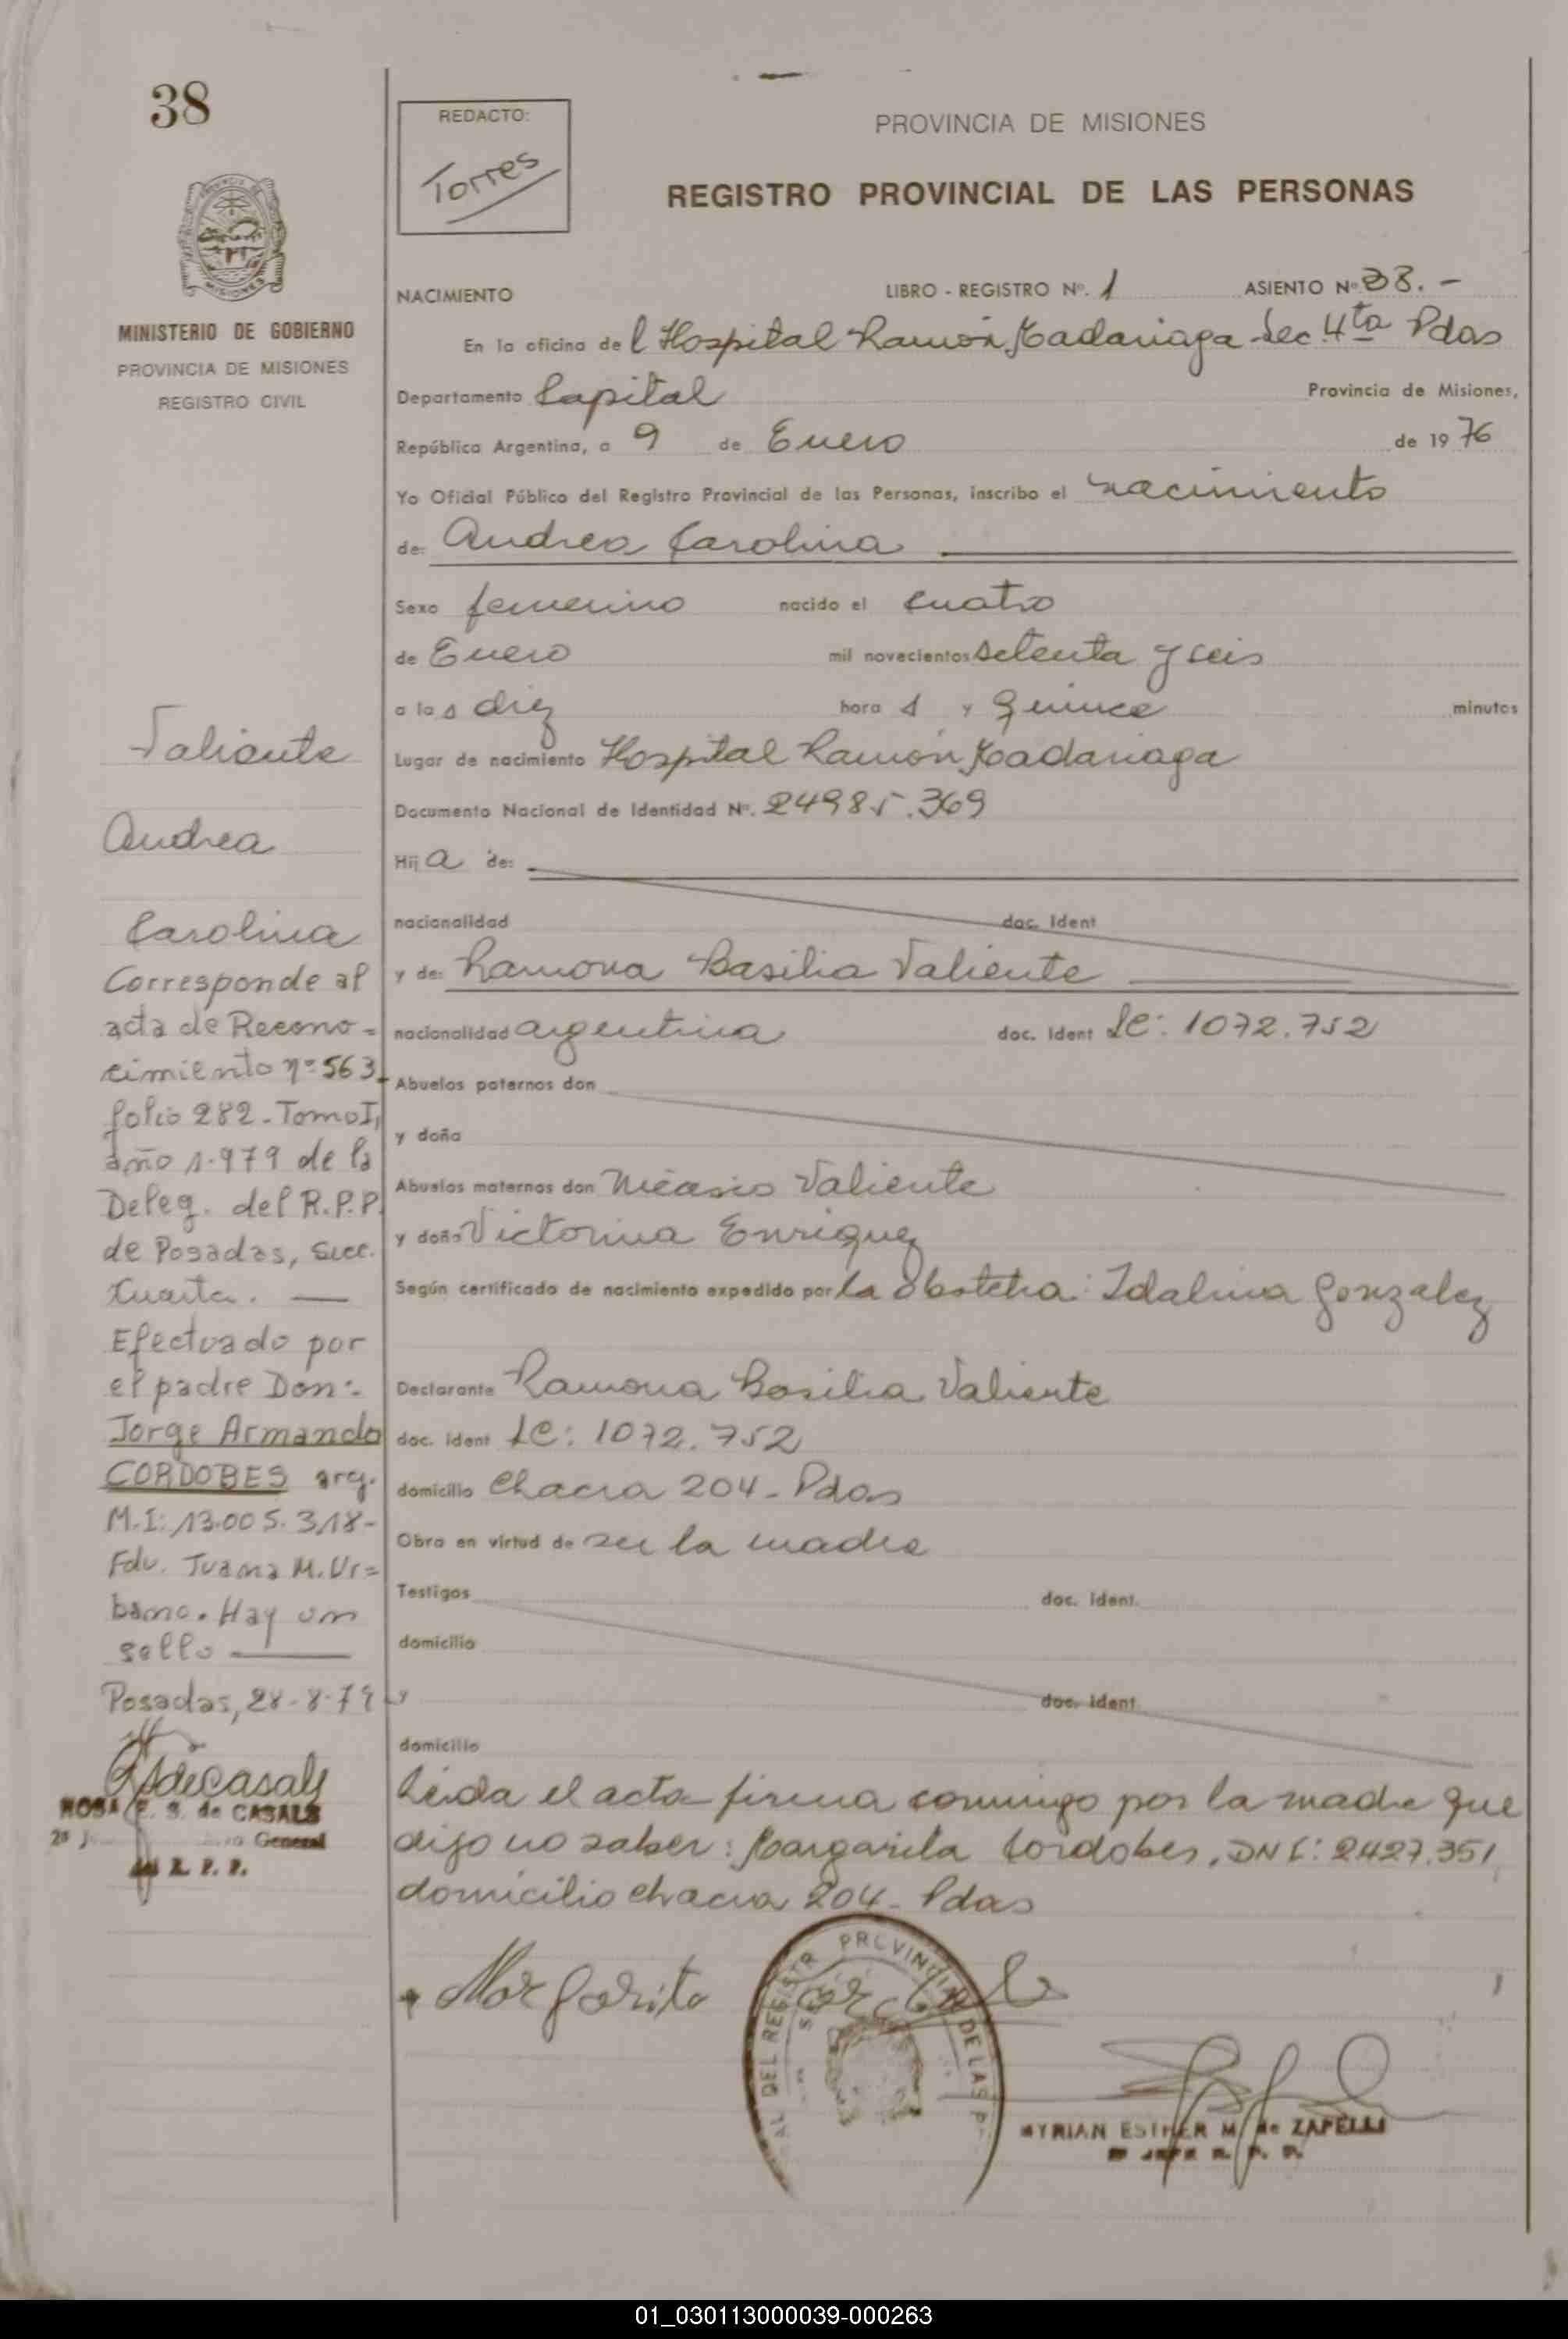 38
REDACTO:
Torres
PROVINCIA DE MISIONES
REGISTRO PROVINCIAL DE LAS PERSONAS
MINISTERIO DE GOBIERNO
PROVINCIA DE MISIONES
REGISTRO CIVIL
NACIMIENTO LIBRO - REGISTRO Nº. 1 ASIENTO Nº 38. -
En la oficina del Hospital Ramón Madariaga Sec. 4ta Pdas
Departamento Capital Provincia de Misiones,
República Argentina, a 9 de Enero de 1976
Yo Oficial Público del Registro Provincial de las Personas, inscribo el nacimiento
de: Andrea Carolina
Sexo femenino nacido el cuatro
de Enero mil novecientos setenta y seis
a las diez horas y quince minutos
Lugar de nacimiento Hospital Ramón Madariaga
Documento Nacional de Identidad Nº. 24985.369
Hija de:
nacionalidad doc. Ident
y de: Ramona Basilia Valiente
nacionalidad argentina doc. Ident LC: 1072.752
Abuelos paternos don
y doña
Abuelos maternos don Nicasio Valiente
y doña Victorina Enriquez
Según certificado de nacimiento expedido por la Obstetra: Idalina Gonzalez
Declarante Ramona Basilia Valiente
doc. ident LC: 1072.752
domicilio Chacra 204 - Pdas
Obra en virtud de ser la madre
Testigos doc. ident.
domicilio
y doc. ident.
domicilio
Leida el acta firma conmigo por la madre que
dijo no saber: Margarita Cordobes, DNI: 2427.351,
domicilio chacra 204 - Pdas
Margarita
DEL REGISTR PROVINCIAL DE LAS P
MYRIAN ESTHER M. de ZAPELLI
JEFE R. P. P.
Valiente
Andrea
Carolina
Corresponde al
acta de Recono=
cimiento nº 563
folio 282 - Tomo I,
año 1.979 de la
Deleg. del R.P.P.
de Posadas, Secc.
Cuarta. —
Efectuado por
el padre Don:
Jorge Armando
CORDOBES arg.
M.I: 13.005.318-
Fdo. Juana M. Ur=
bano. Hay un
sello —
Posadas, 28-8-79
ROSA E. S. de CASALS
General
R. P. P.
01_030113000039-000263